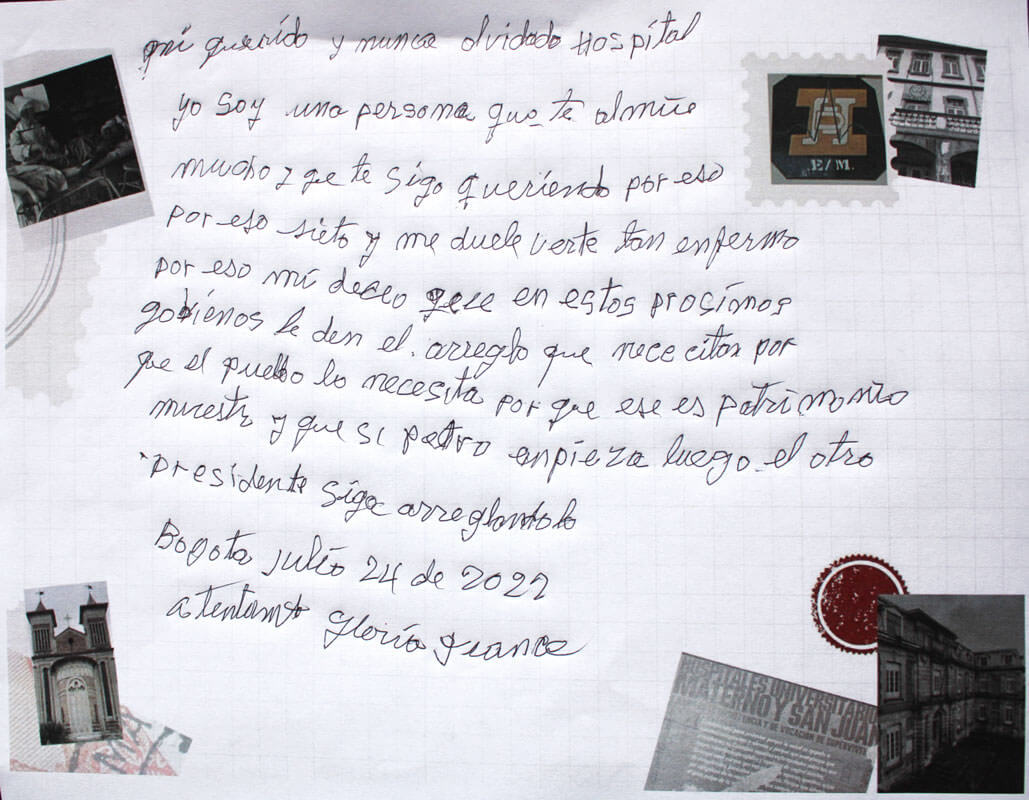 mi querido y nunca olvidado Hospital
yo soy una persona que te almiré
mucho y que te sigo queriendo por eso
por eso sieto y me duele verte tan enfermo
por eso mi deceo que en estos procímos
gobienos le den el. arreglo que nececitan por
que el pueblo lo necesita por que ese es patrimonio
nuestro y que si petro enpieza luego el otro
presidente siga arreglandolo
Bogota julio 24 de 2022
atentamte Gloria
E/M.
HOSPITALES UNIVERSITARIO
MATERNO Y SAN JUAN